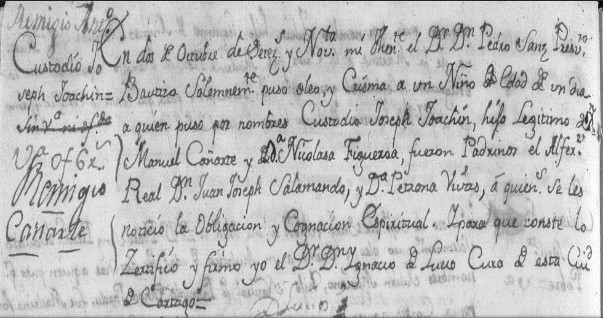 Remigio
Custodio Jo
seph Joachin=
Remigio
Cañarte
En dos de Octubre de y Nov.ta mi then.te el D.r D.n Pedro Sanz Presv.ro
Bautizo Solemnem.te puso oleo, y Crisma a un Niño de Edad de un dia
a quien puso por nombres Custodio Joseph Joachin, hijo Legitimo de D.n
Manuel Cañarte y D.a Nicolasa Figueroa, fueron Padrinos el Alfer.z
Real D.n Juan Joseph Salamando, y D.a Petrona Vivas, á quien.s Se les
noticio la Obligacion y Cognacion Espiritual. Y para que conste lo
Zertifico y firmo yo el D.r D.n Ignacio de Cura de esta Ciu.d
de Cartago=